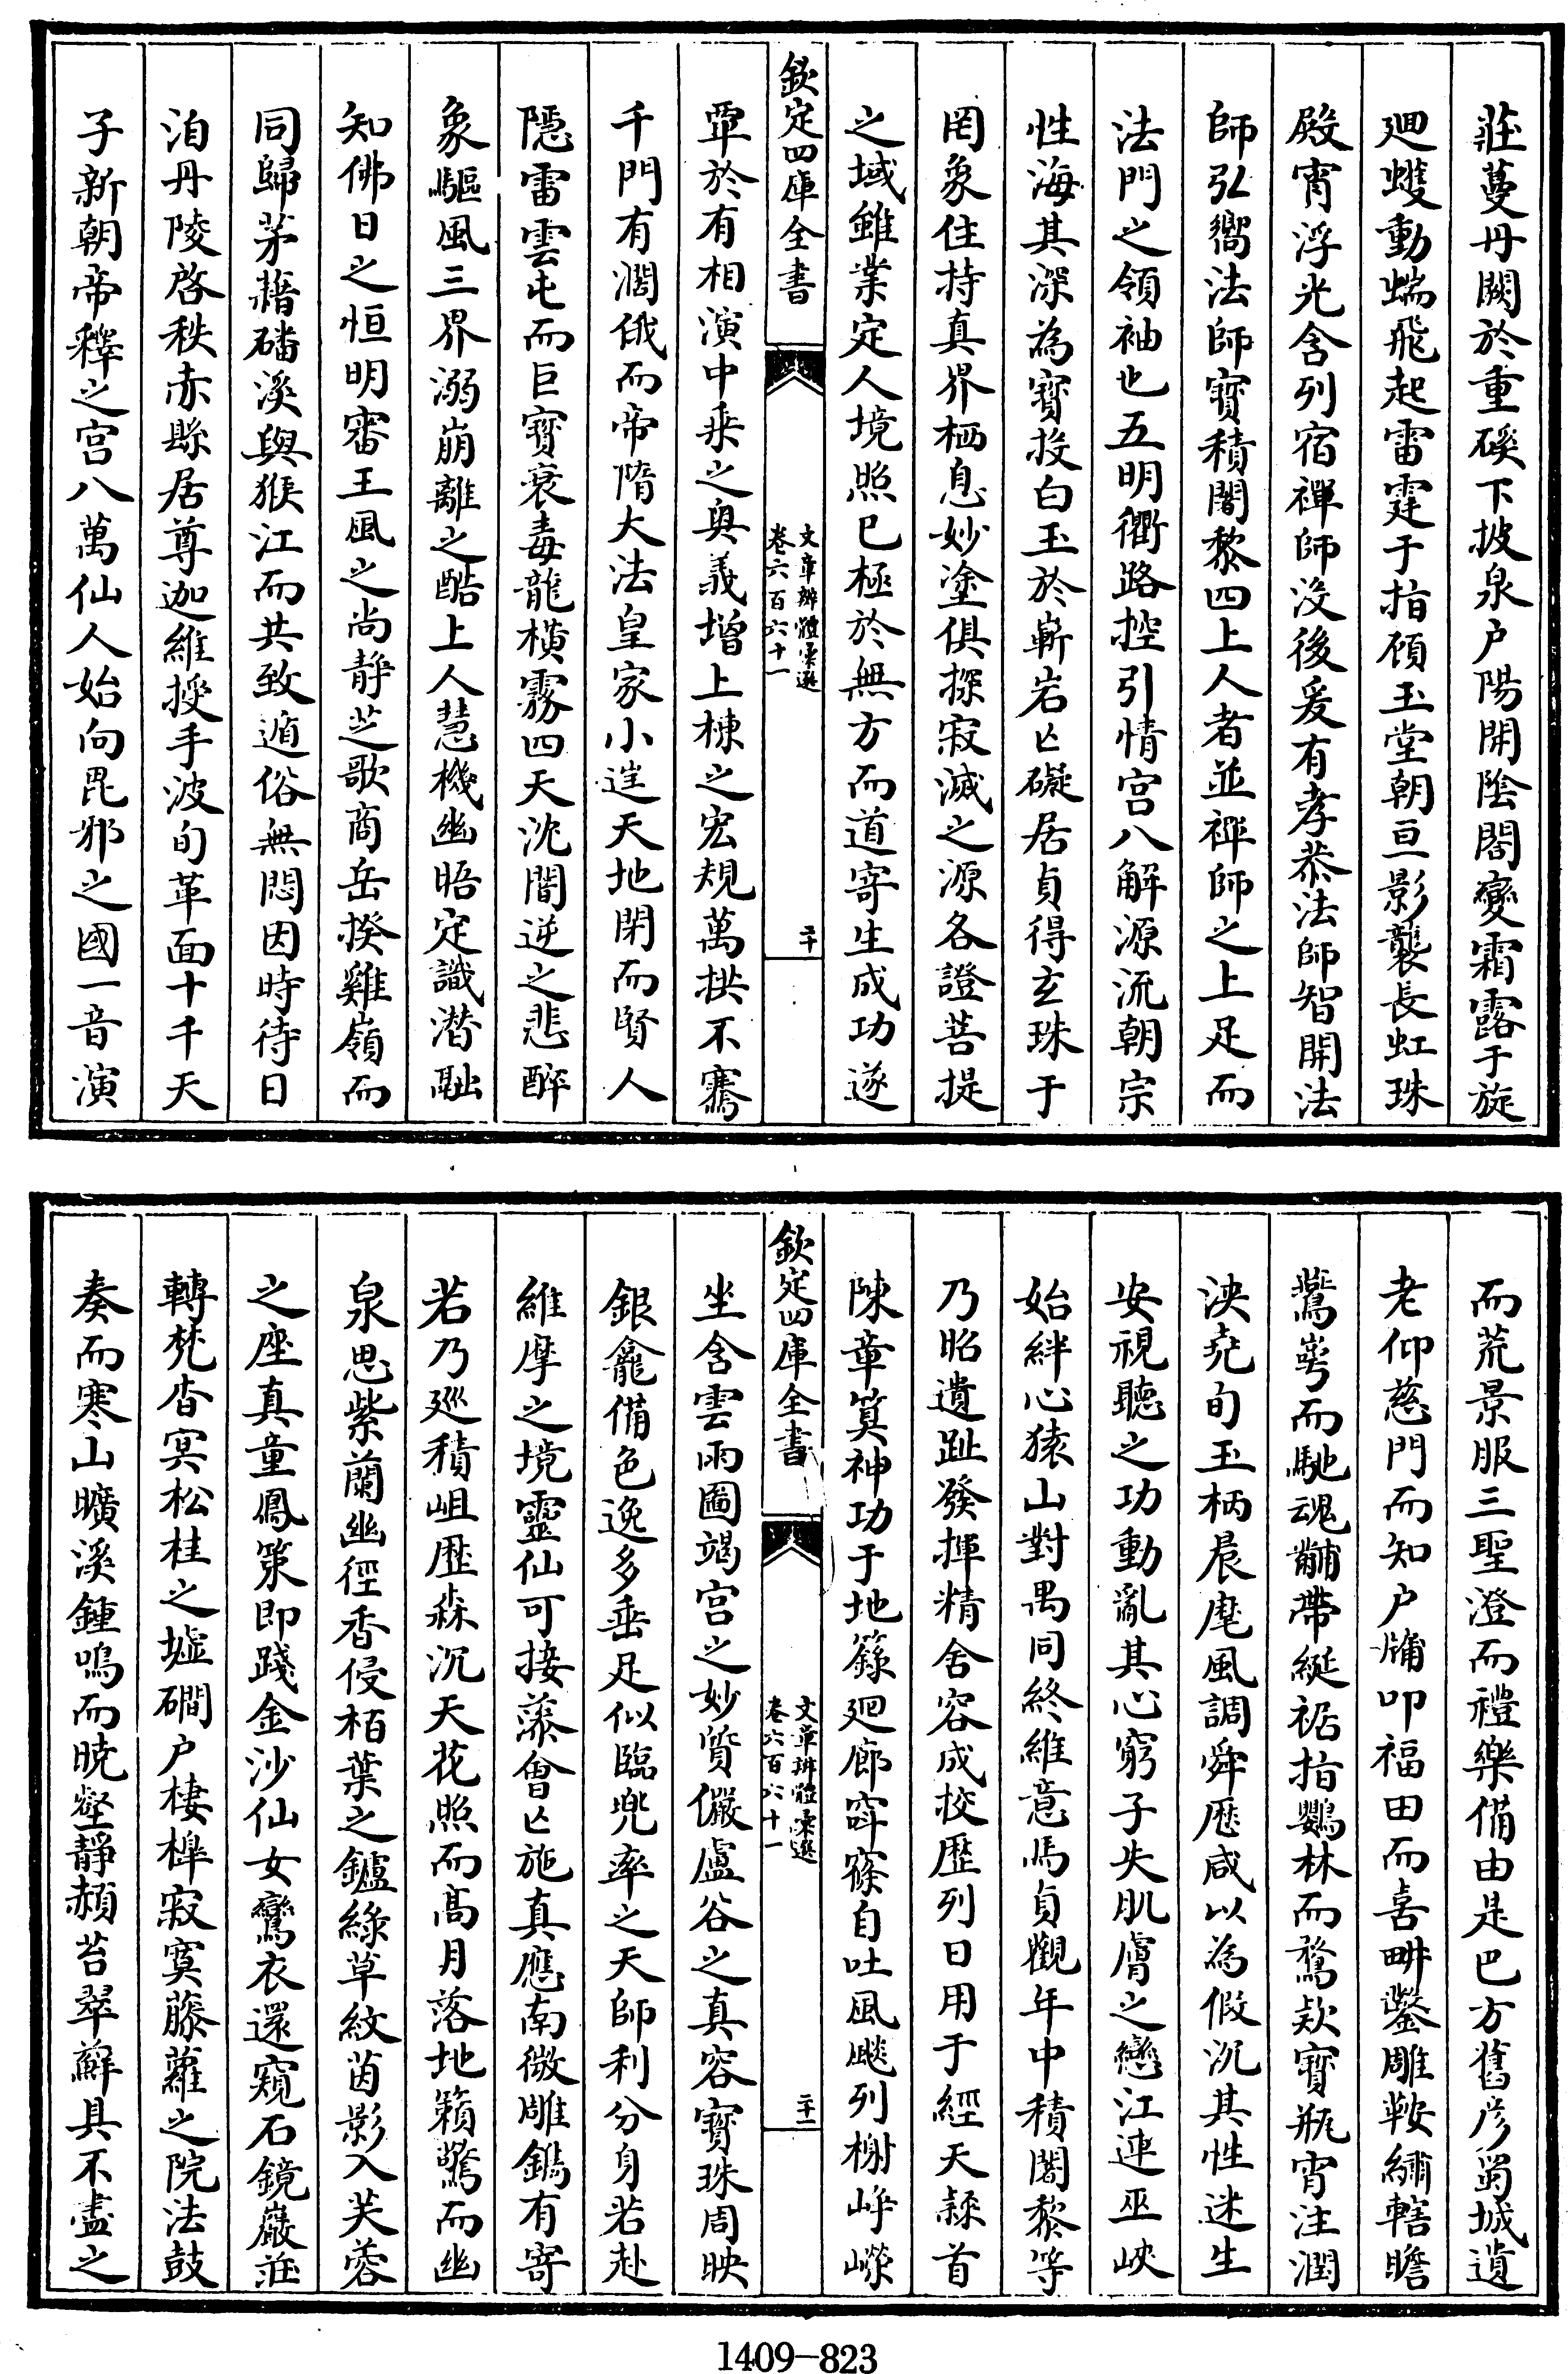 莊蔓丹闕於重磎下披泉户陽開陰閤變霜露于旋
廻蠖動蝡飛起雷霆于指顧玉堂朝亘影襲長虹珠
殿宵浮光含列宿禪師没後爰有孝恭法師智開法
師弘嚮法師寳積闍黎四上人者並禪師之上足而
法門之領袖也五明衢路控引情宫八解源流朝宗
性海其深為寳投白玉於嶄岩亡礙居貞得玄珠于
罔象住持真界栖息妙塗俱探寂滅之源各證菩提
之域雖業定人境照已極於無方而道寄生成功遂
欽定四庫全書
文章辨體彚選
卷六百六十一
二十
覃於有相演中乗之奥義增上棟之宏規萬拱不騫
千門有濶俄而帝隋大法皇家小逆天地閉而賢人
隱雷雲屯而巨寳衰毒龍横霧四天沈闇逆之悲醉
象驅風三界溺崩離之酷上人慧機幽晤定識潜融
知佛日之恒明審王風之尚靜芝歌商岳揆雞嶺而
同歸茅藉磻溪與猴江而共致遁俗無悶因時待日
洎丹陵啓秩赤縣居尊迦維授手波旬革面十千天
子新朝帝釋之宫八萬仙人始向毘邪之國一音演
而荒景服三聖澄而禮樂備由是巴方舊彦蜀城遺
老仰慈門而知户牖叩福田而喜畊鑿雕鞍繡轄瞻
鷲嶺而馳魂黼帶綖裾指鸚林而騖欵寳瓶宵注潤
泱堯旬玉柄晨麾風調舜歴咸以為假沉其性迷生
安視聽之功動亂其心窮子失肌膚之戀江連巫峽
始絆心猿山對禺同終維意馬貞觀年中積闍黎等
乃昭遺趾發揮精舍容成校歴列日用于經天隸首
陳章筭神功于地籙廻廊窙寥自吐風飈列榭崢嶸
欽定四庫全書
文章辨體彚選
卷六百六十一
二十一
坐含雲雨圖竭宫之妙質儼盧谷之真容寳珠周映
銀龕備色逸多垂足似臨兜率之天師利分身若赴
維摩之境靈仙可接藻會亡施真應南微雕鐫有寄
若乃巡積岨歴森沉天花照而髙月落地籟驚而幽
泉思紫蘭幽徑香侵栢葉之鑪綠草紋茵影入芙蓉
之座真童鳳䇿即踐金沙仙女鸞衣還窺石鏡巖莊
轉梵杳㝠松桂之墟磵户棲櫸寂寞藤蘿之院法鼓
奏而寒山曠溪鍾鳴而暁壑靜赬苔翠蘚具不盡之
1409-823